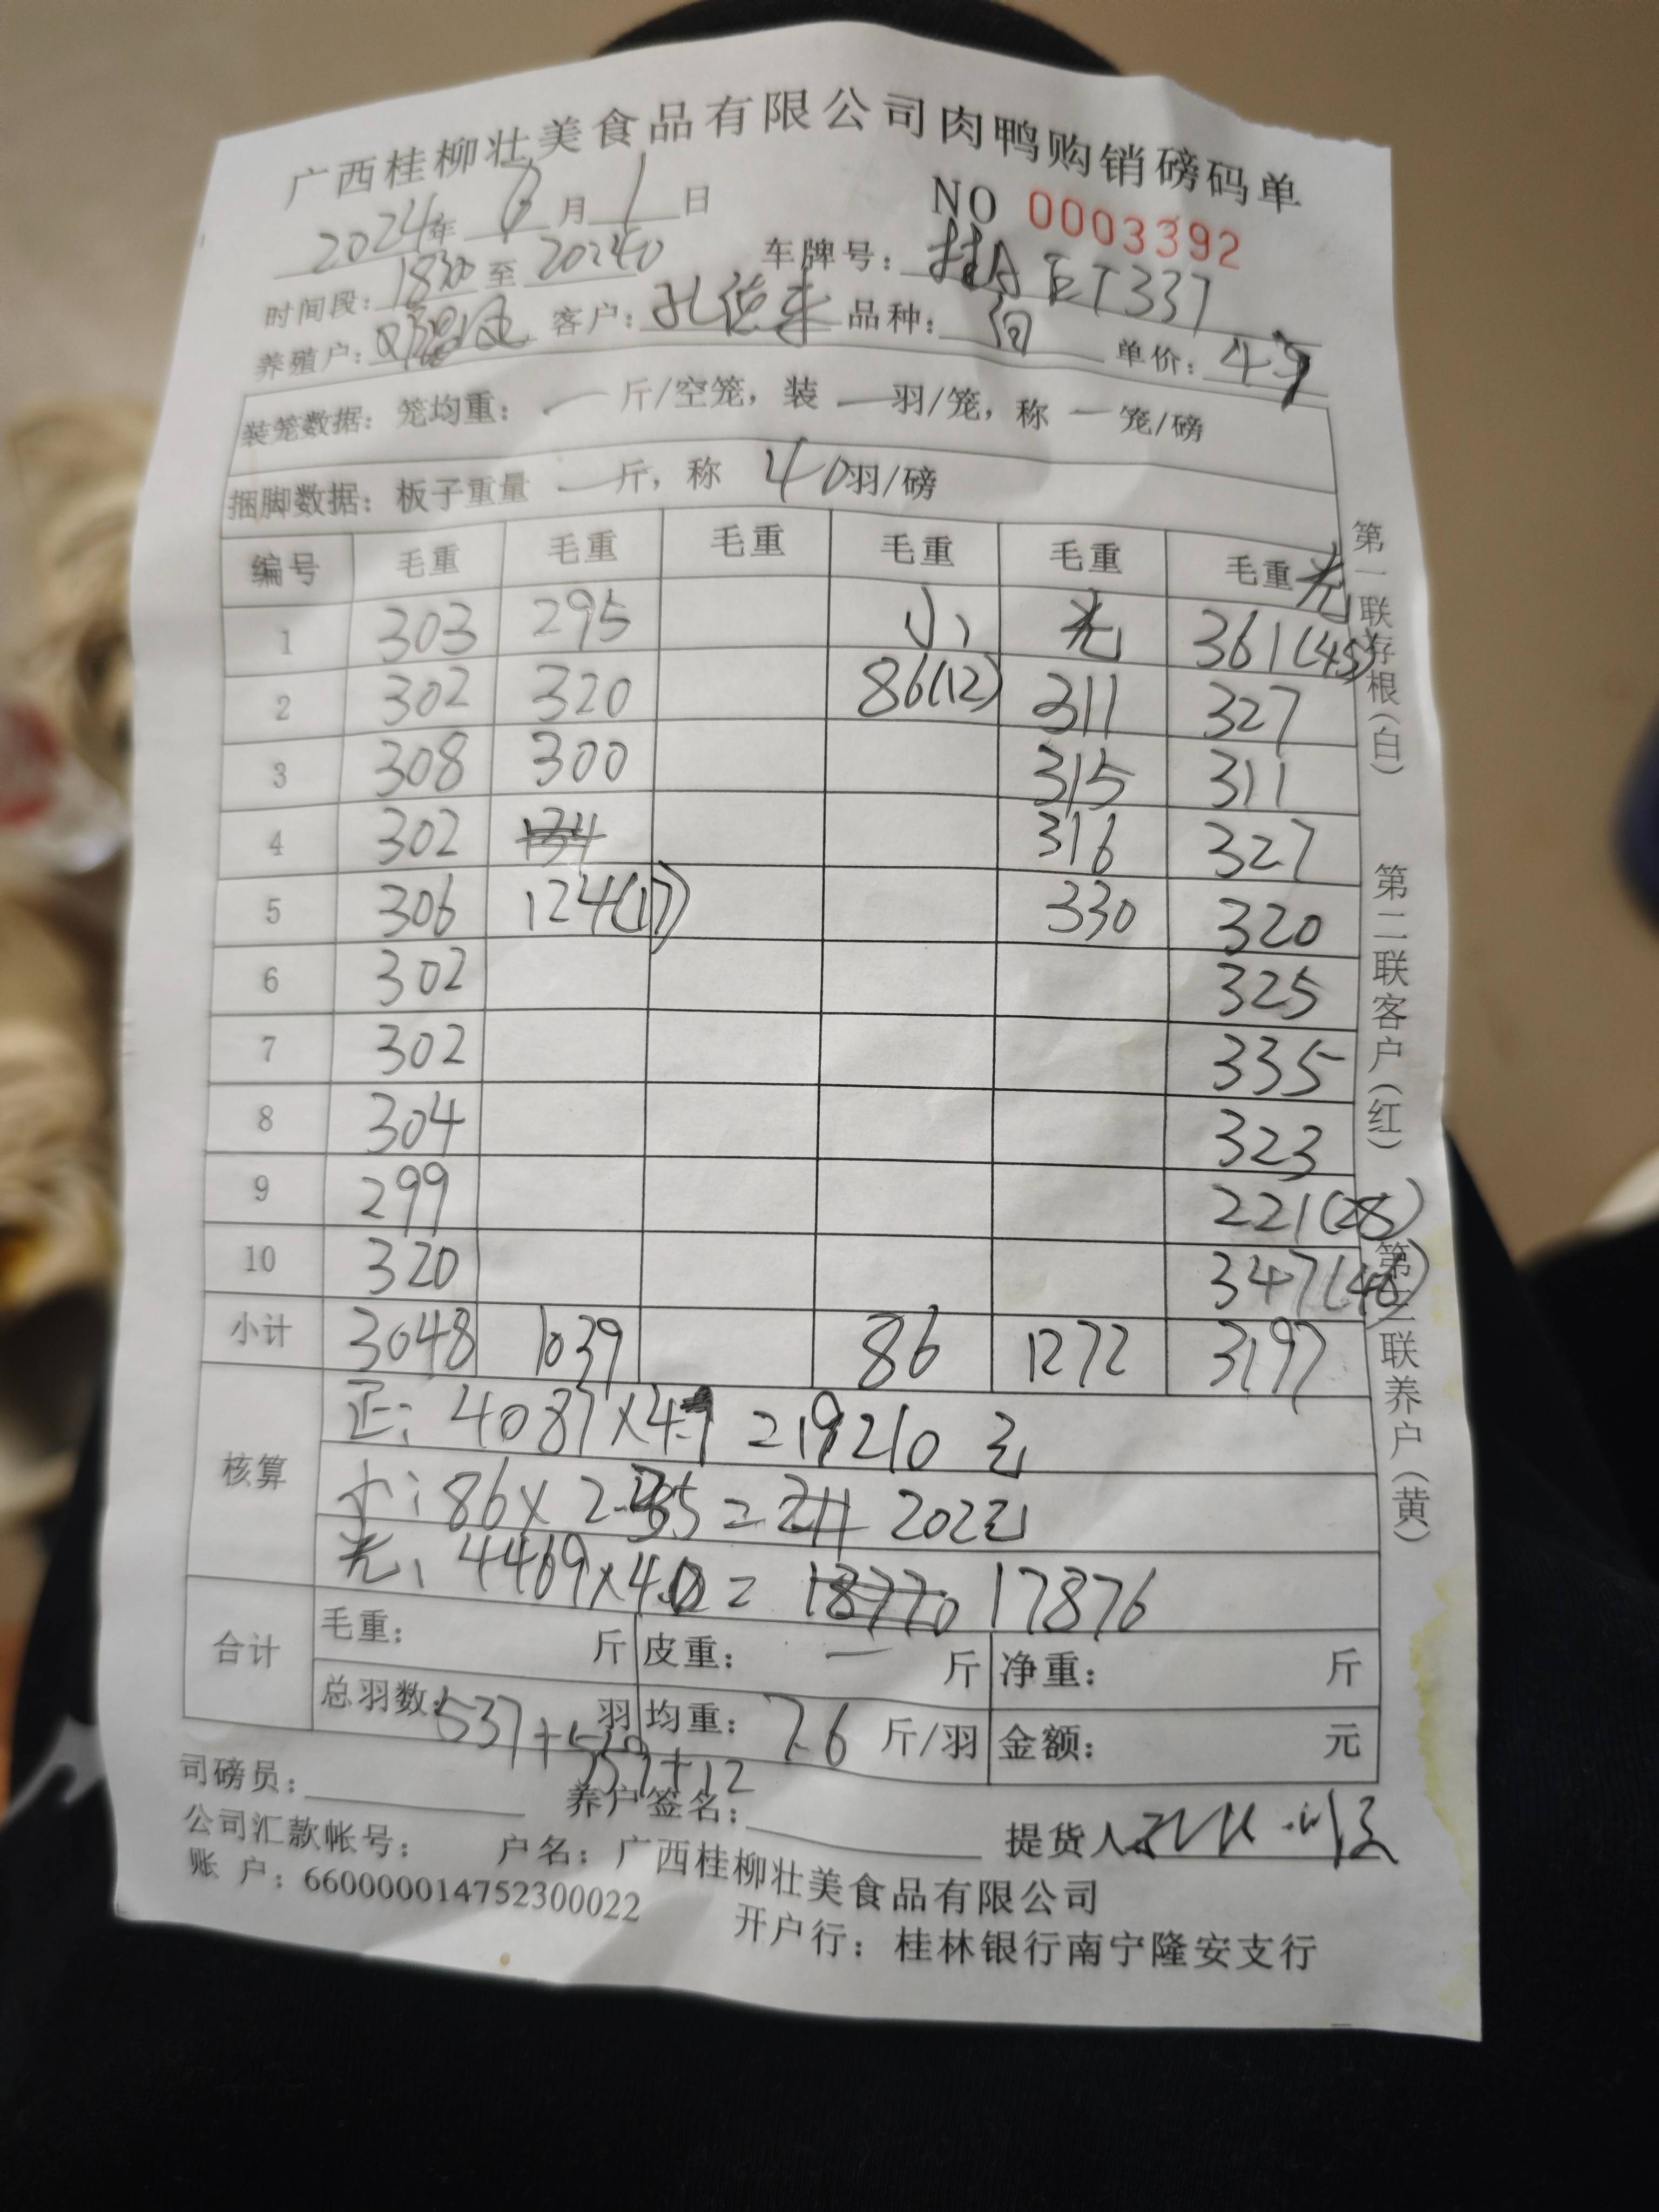 广西桂柳壮美食品有限公司肉鸭购销磅码单
2024年 月 1 日 NO 0003392
时间段: 1830 至 车牌号: 桂A ET337
养殖户: 客户: 孔德来 品种: 单价: 4.7
装笼数据: 笼均重: 一 斤/空笼, 装 一 羽/笼, 称 一 笼/磅
捆脚数据: 板子重量 一 斤, 称 40 羽/磅
编号 毛重 毛重 毛重 毛重 毛重 毛重 光
1 303 295 小 光 361(45)
2 302 320 86(12) 311 327
3 308 300 315 311
4 302 134 316 327
5 306 124(17) 330 320
6 302 325
7 302 335
8 304 323
9 299 221(28)
10 320 347(46)
小计 3048 1039 86 1272 3197
核算 正: 4087×4.7=19210 元
小: 86×2.35= 211 202元
光: 4469×4.0= 18770 17876
合计 毛重: 斤 皮重: 一 斤 净重: 斤
总羽数: 537+ 羽 均重: 7.6 斤/羽 金额: 元
559+12
司磅员: 养户签名: 提货人
公司汇款帐号: 户名: 广西桂柳壮美食品有限公司
账 户: 660000014752300022 开户行: 桂林银行南宁隆安支行
第一联存根(白)
第二联客户(红)
第三联养户(黄)